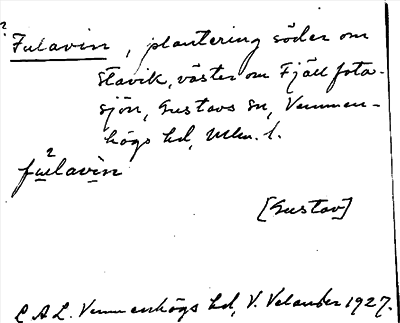 Fulavin, plantering söder om
Stavik, väster om Fjällfota-
sjön, Gustavs sn, Vemmen-
högs hd, Mlm. l.
fulavin
[Gustav]
C A L. Vemmenhögs hd, V. Velander 1927.